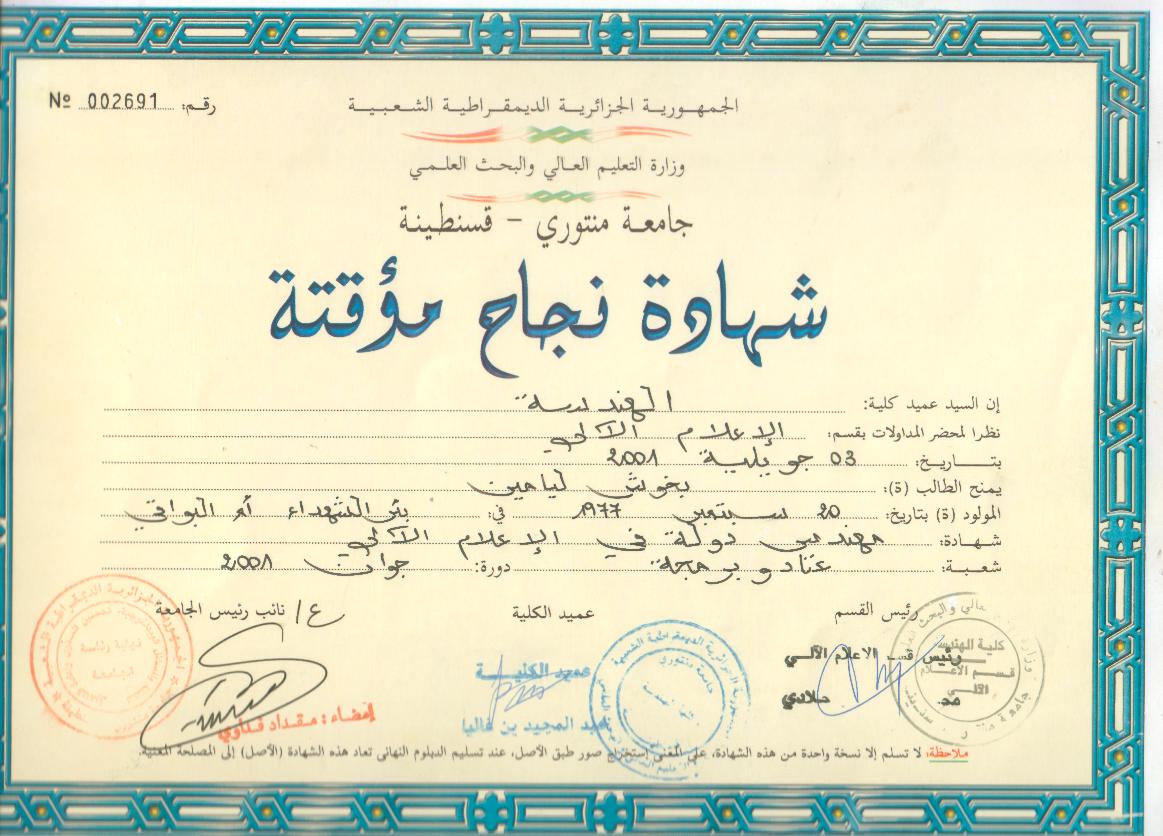 رقم: 002691 Nº
الجمهورية الجزائرية الديمقراطية الشعبية
وزارة التعليم العالي والبحث العلمي
جامعة منتوري - قسنطينة
شهادة نجاح مؤقتة
إن السيد عميد كلية: الهندسة
نظرا لمحضر المداولات بقسم: الإعلام الآلي
بتاريخ: 03 جويلية 2001
يمنح الطالب (ة): بخوش ليامين
المولود (ة) بتاريخ: 20 سبتمبر 1977 في: بئر الشهداء أم البواقي
شهادة: مهندس دولة في الإعلام الآلي
شعبة: عتاد و برمجة دورة: جوان 2001
رئيس القسم
عميد الكلية
ع/ نائب رئيس الجامعة
رئيس قسم الاعلام الآلي
عميد الكلية
عبد المجيد بن غاليا
إمضاء: مقداد
نيابة رئاسة
الجامعة
كلية الهندسة
قسم الاعلام
الآلي
ملاحظة: لا تسلم إلا نسخة واحدة من هذه الشهادة، على المعني إستخراج صور طبق الأصل، عند تسليم الدبلوم النهائي تعاد هذه الشهادة (الأصل) إلى المصلحة المعنية.